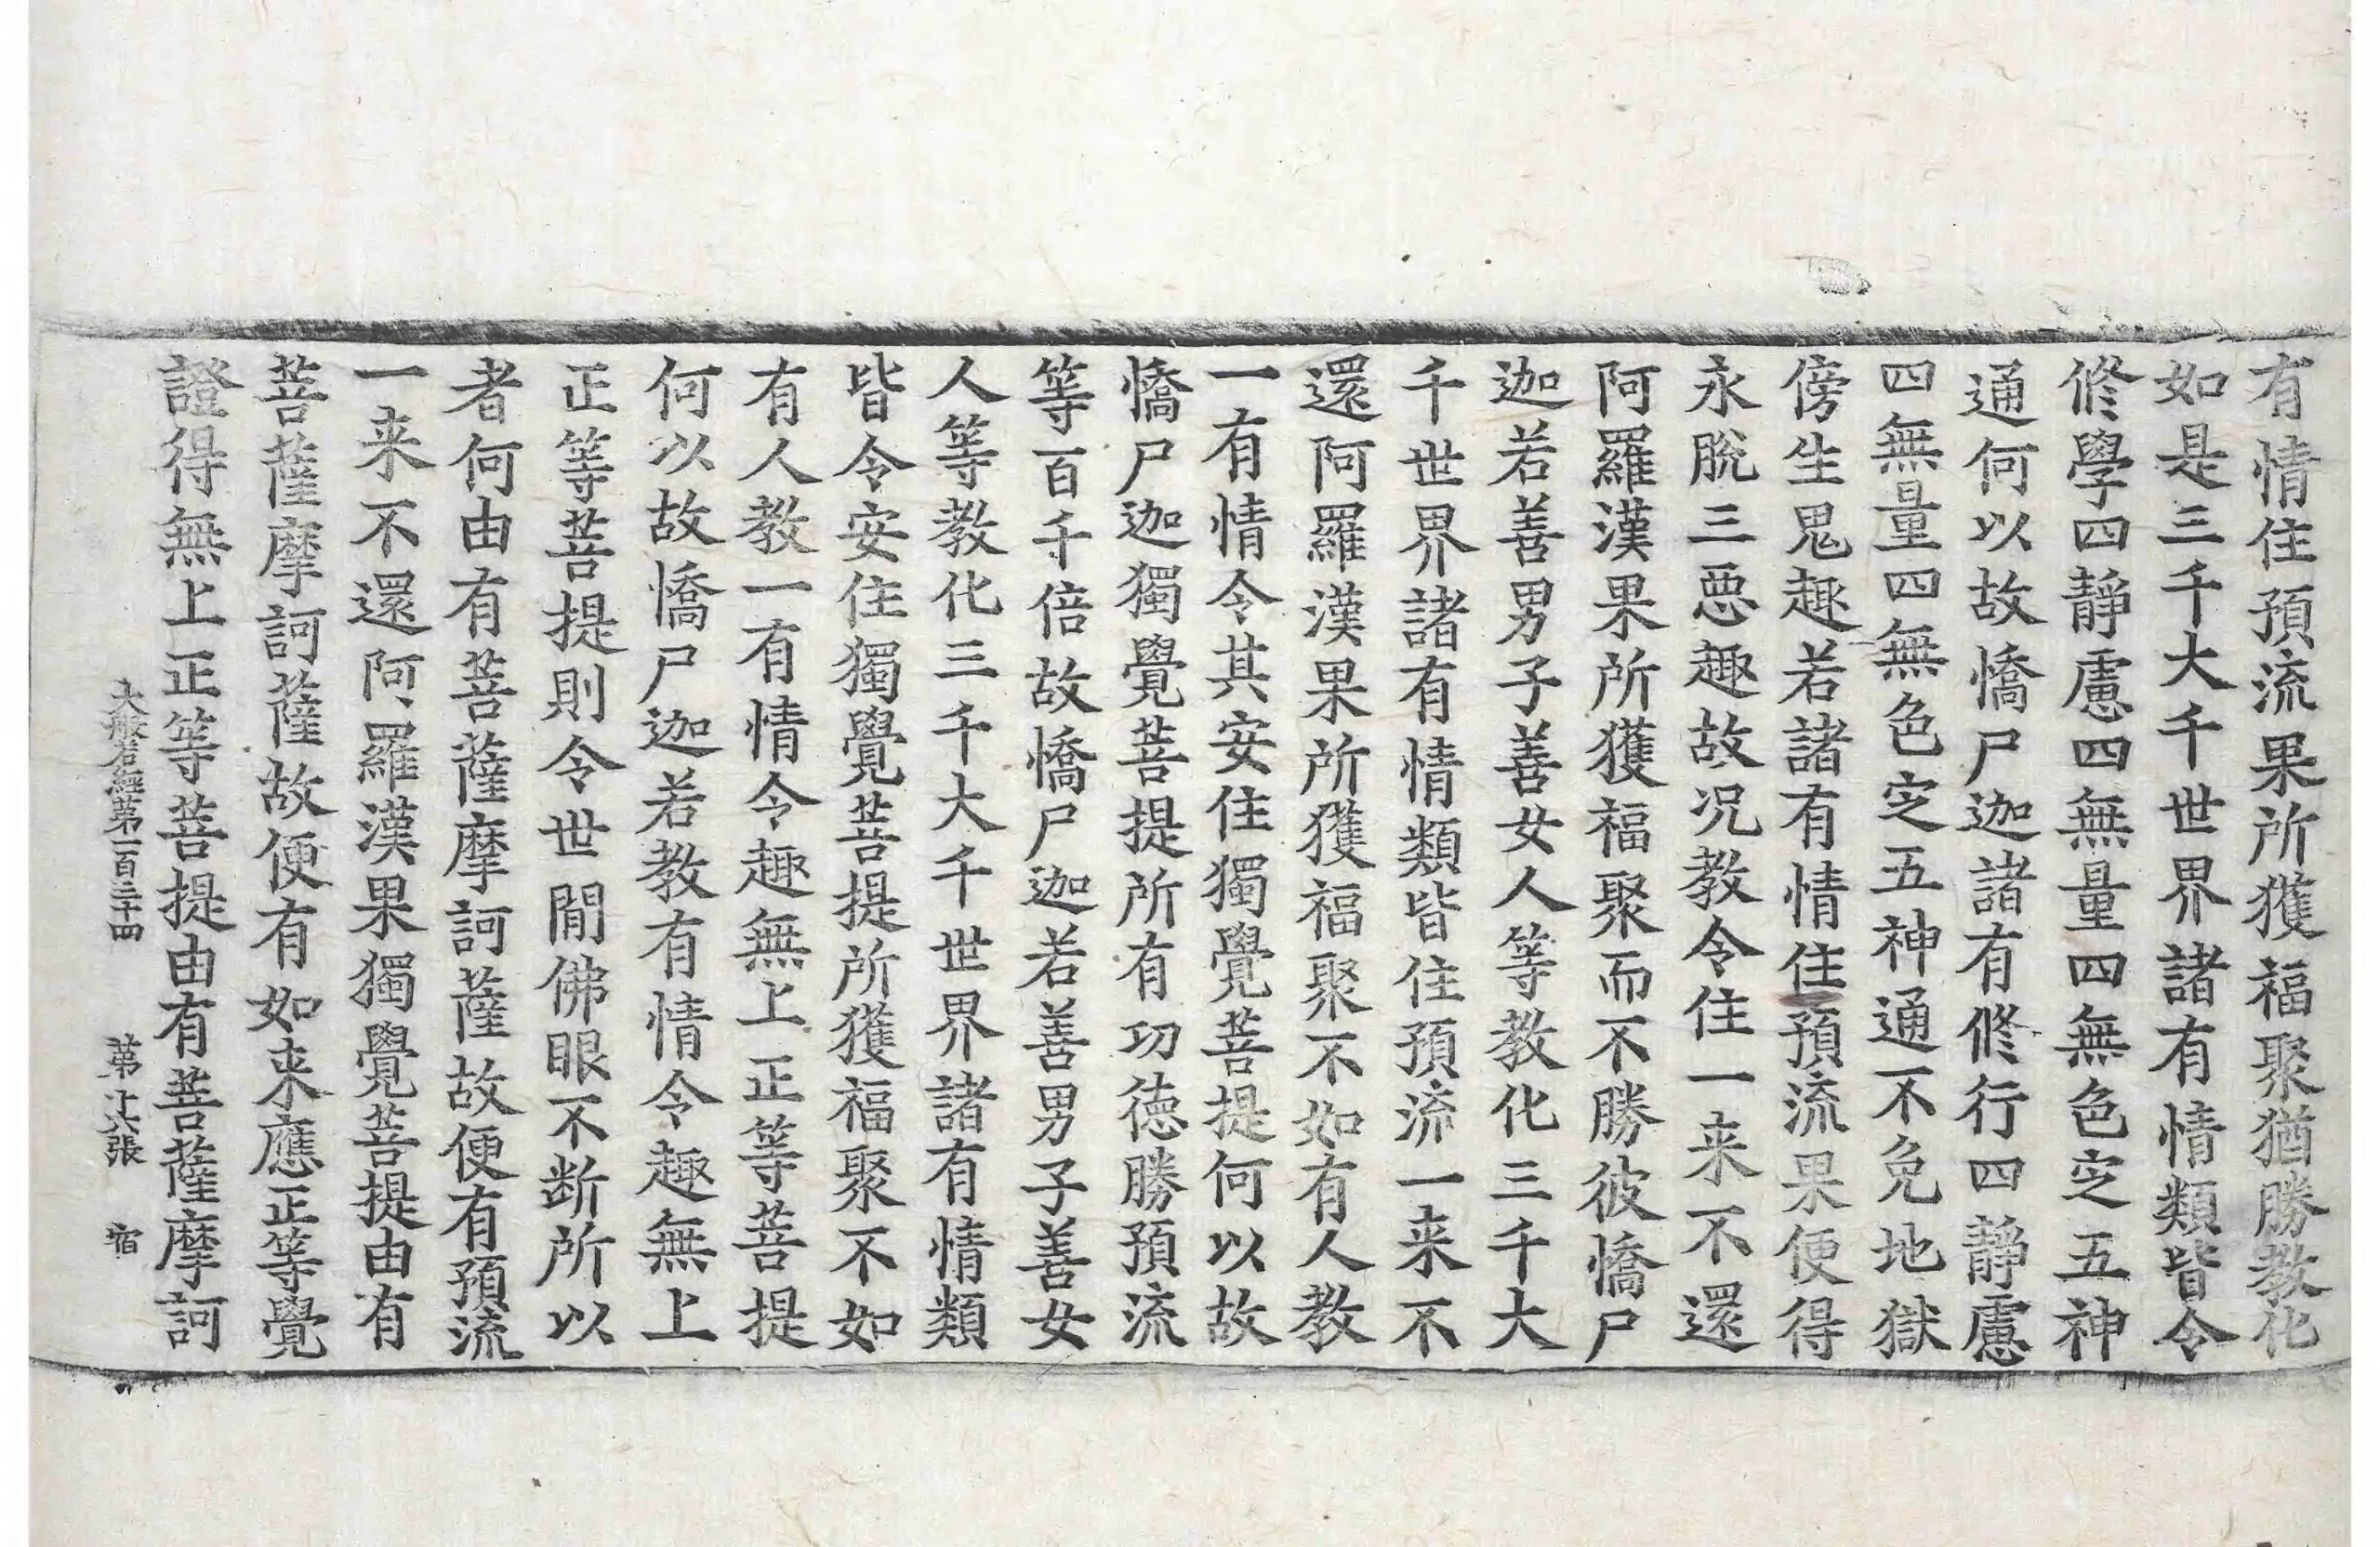 有情住預流果所獲福聚猶勝教化
如是三千大千世界諸有情類皆令
修學四靜慮四無量四無色㝎五神
通何以故憍尸迦諸有修行四靜慮
四無量四無色㝎五神通不免地獄
傍生鬼趣若諸有情住預流果便得
永脫三惡趣故况教令住一来不還
阿羅漢果所獲福聚而不勝彼憍尸
迦若善男子善女人等教化三千大
千世界諸有情類皆住預流一来不
還阿羅漢果所獲福聚不如有人教
一有情令其安住獨覺菩提何以故
憍尸迦獨覺菩提所有功德勝預流
等百千倍故憍尸迦若善男子善女
人等教化三千大千世界諸有情類
皆令安住獨覺菩提所獲福聚不如
有人教一有情令趣無上正等菩提
何以故憍尸迦若教有情令趣無上
正等菩提則令世閒佛眼不断所以
者何由有菩薩摩訶薩故便有預流
一来不還阿羅漢果獨覺菩提由有
菩薩摩訶薩故便有如来應正等覺
證得無上正等菩提由有菩薩摩訶
大般若經第一百三十四 第十六張 宿